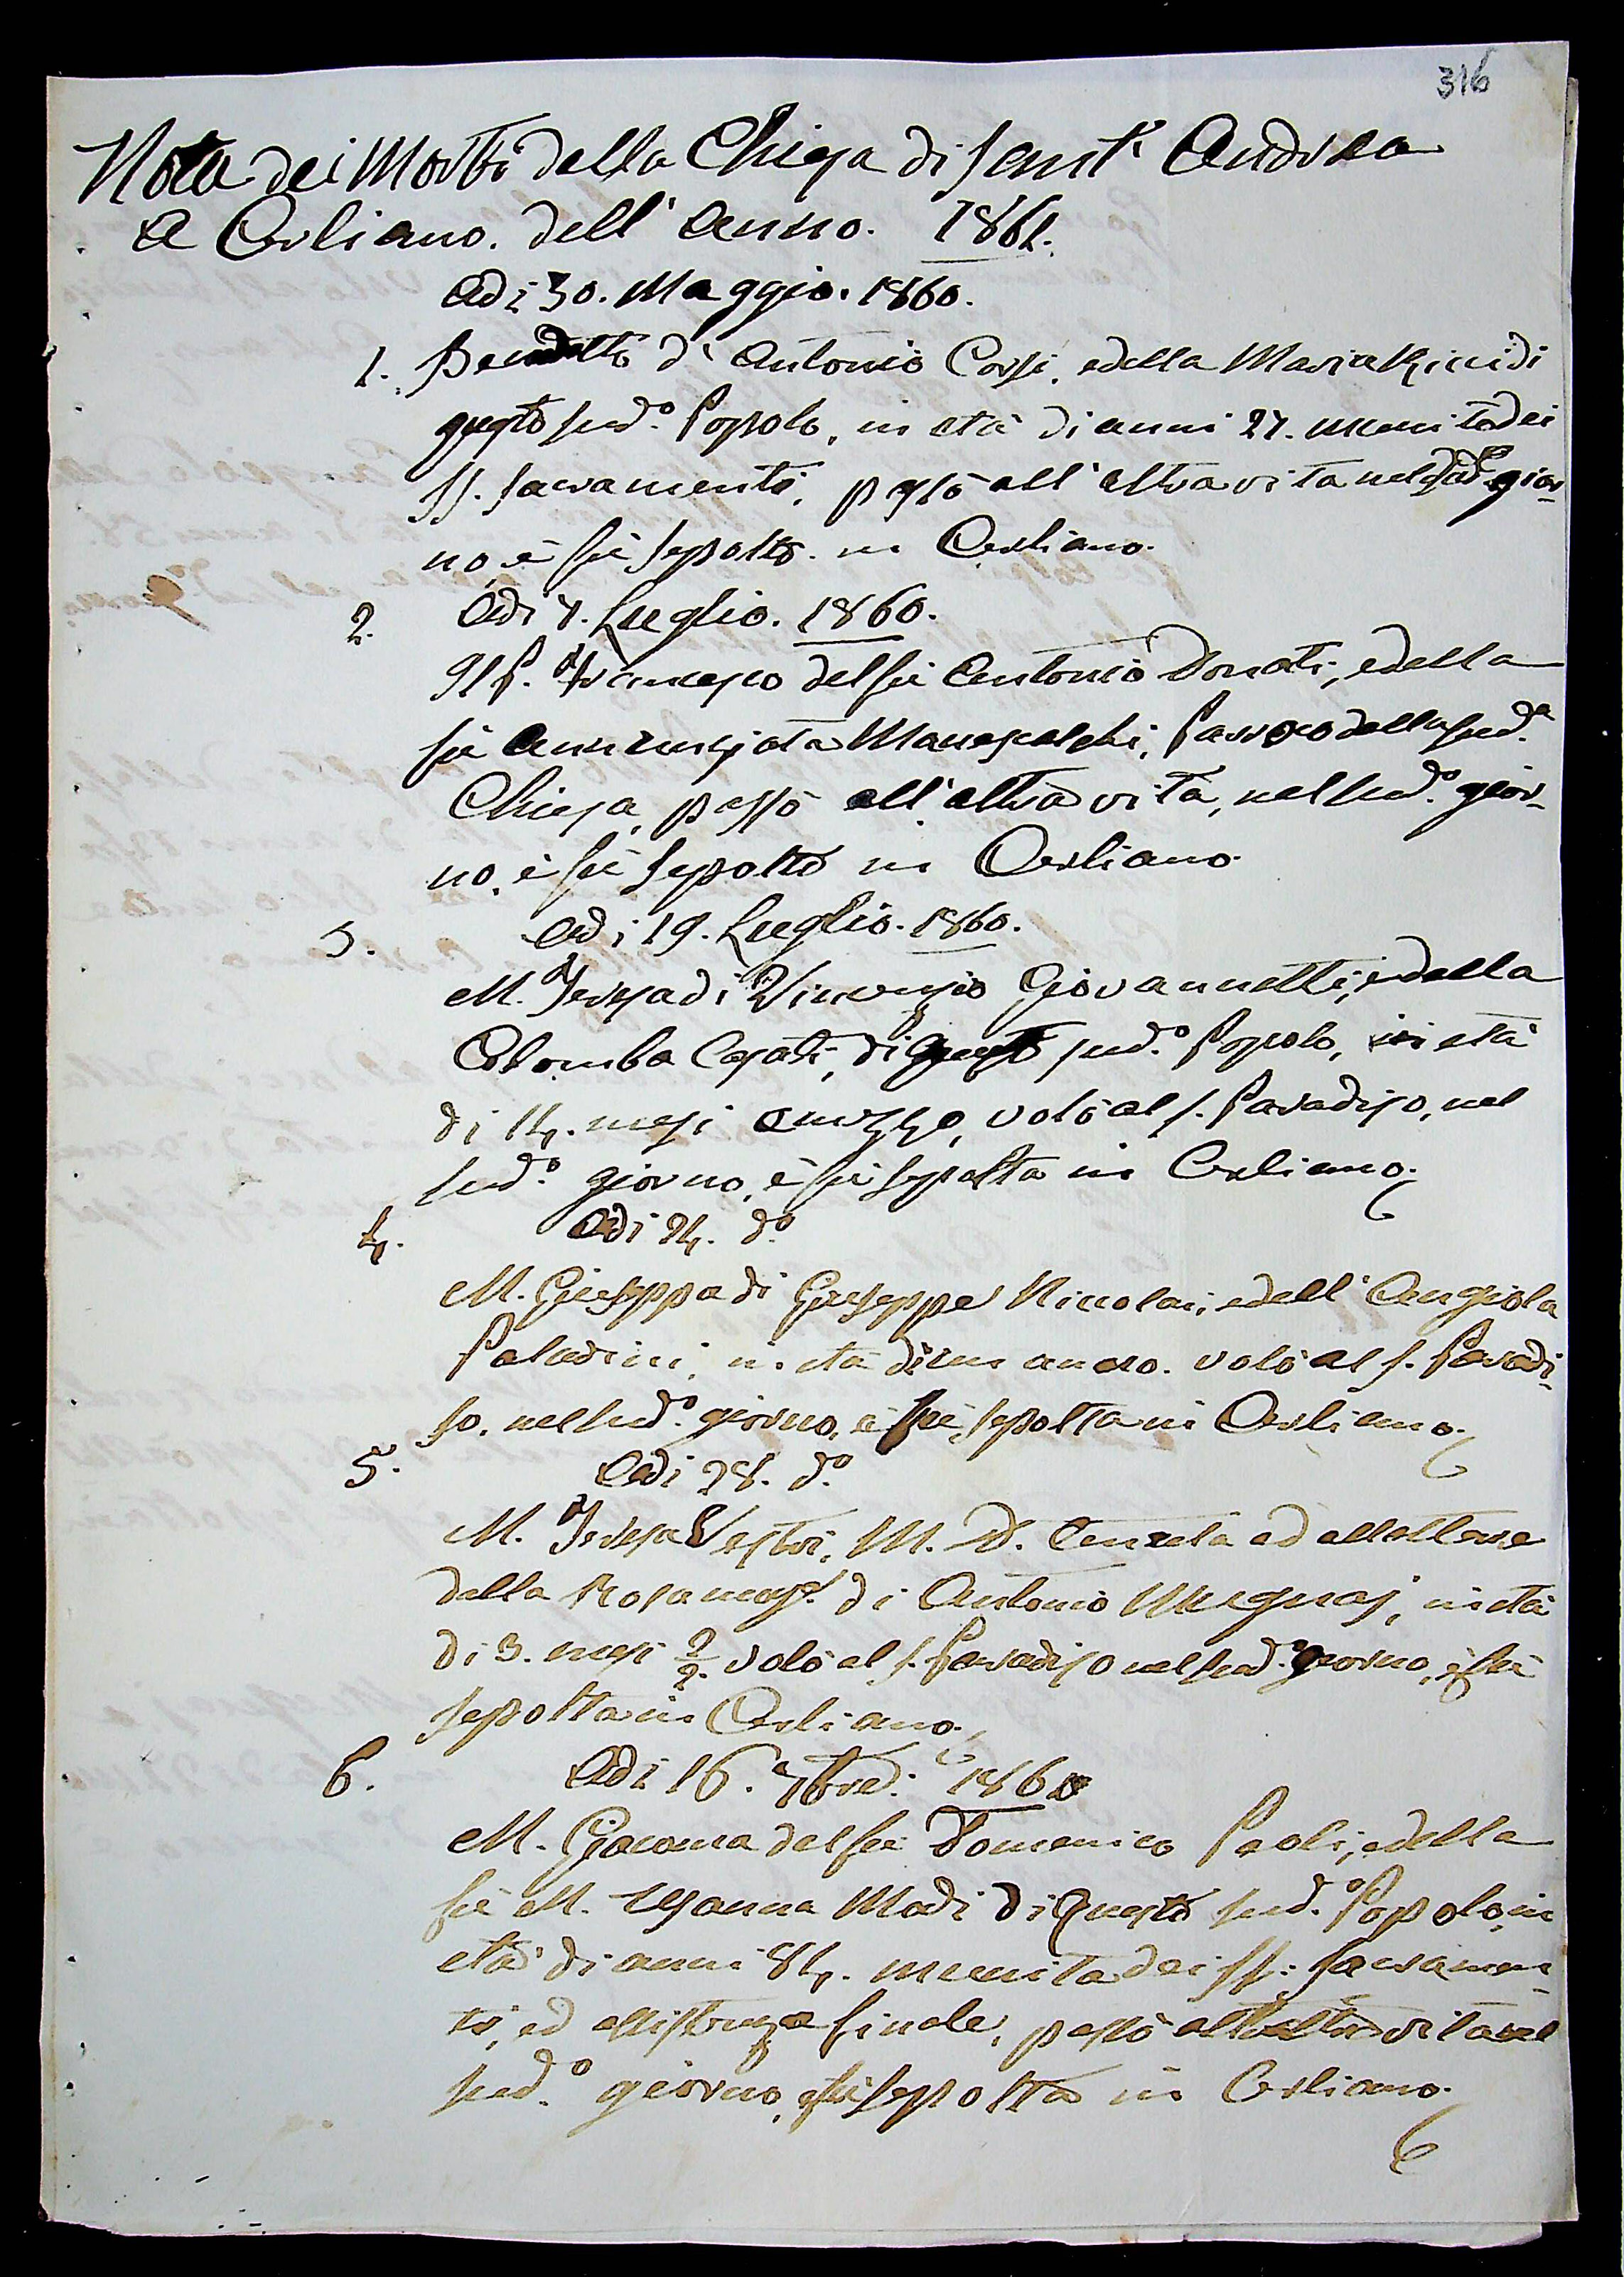 316
Nota dei Morti della Chiesa di Sant' Andrea
a Cerliano. dell' anno. 1861.
Adi 30. Maggio. 1860.
1. Benedetto di Antonio Corsi, e della Maria di
questo sud.o Popolo, in età di anni 27. munito dei
SS. Sacramenti, passò all' altra vita nel sud.o gior-
no, e fù sepolto. in Cerliano.
2. Adi 8. Luglio. 1860.
Il P. Francesco del fù Antonio Donati, e della
fù Annunziata, Parroco della sud.a
Chiesa, passò all' altra vita, nel sud.o gior-
no, e fù sepolto in Cerliano.
3. Adi 19. Luglio. 1860.
M. Teresa di Vincenzio Giovannetti, e della
Colomba Casati, di questo sud.o Popolo, in età
di 14. mesi e mezzo, volò al S. Paradiso, nel
sud.o giorno, e fù sepolta in Cerliano.
4. Adi 24. d.o
M. Giuseppa di Giuseppe Niccolai, e dell' Angiola
Paladini, in età di un anno. volò al S. Paradi-
so. nel sud.o giorno, e fù sepolta in Cerliano.
5. Adi 28. d.o
M. Teresa Vestri, M. D. tenuta ad allattare
dalla Rosa mog.e di Antonio Mugnaj, in età
di 3. mesi volò al S. Paradiso nel sud.o giorno, e fù
sepolta in Cerliano.
6. Adi 16. 7bre. 1860
M. Giacoma del fù Domenico Paoli, e della
fù M. Osanna Madi di questo sud.o Popolo, in
età di anni 84. munita dei SS. Sacramen-
ti, ed assistenza finale, passò all'altra vita nel
sud.o giorno, e fù sepolta in Cerliano.